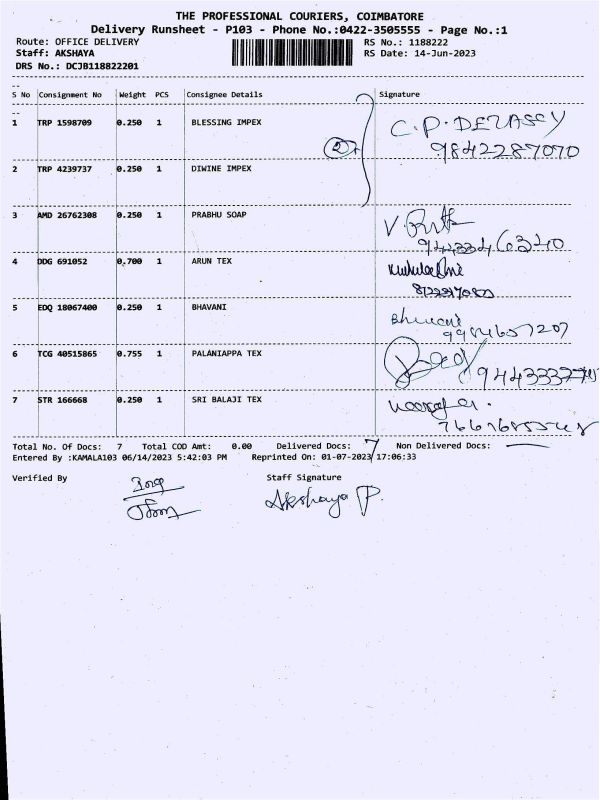 THE PROFESSIONAL COURIERS, COIMBATORE
Delivery Runsheet - P103 - Phone No.:0422-3505555 - Page No.:1
Route: OFFICE DELIVERY RS No.: 1188222
Staff: AKSHAYA RS Date: 14-Jun-2023
DRS No.: DCJB118822201
S No Consignment No Weight PCS Consignee Details Signature
1 TRP 1598709 0.250 1 BLESSING IMPEX C.P.DEVASSY
2 9842287070
2 TRP 4239737 0.250 1 DIWINE IMPEX
3 AMD 26762308 0.250 1 PRABHU SOAP
4 DDG 691052 0.700 1 ARUN TEX
5 EDQ 18067400 0.250 1 BHAVANI Bhuvani
6 TCG 40515865 0.755 1 PALANIAPPA TEX
7 STR 166668 0.250 1 SRI BALAJI TEX
Total No. Of Docs: 7 Total COD Amt: 0.00 Delivered Docs: 7 Non Delivered Docs: —
Entered By :KAMALA103 06/14/2023 5:42:03 PM Reprinted On: 01-07-2023 17:06:33
Verified By Staff Signature
Akshaya P.